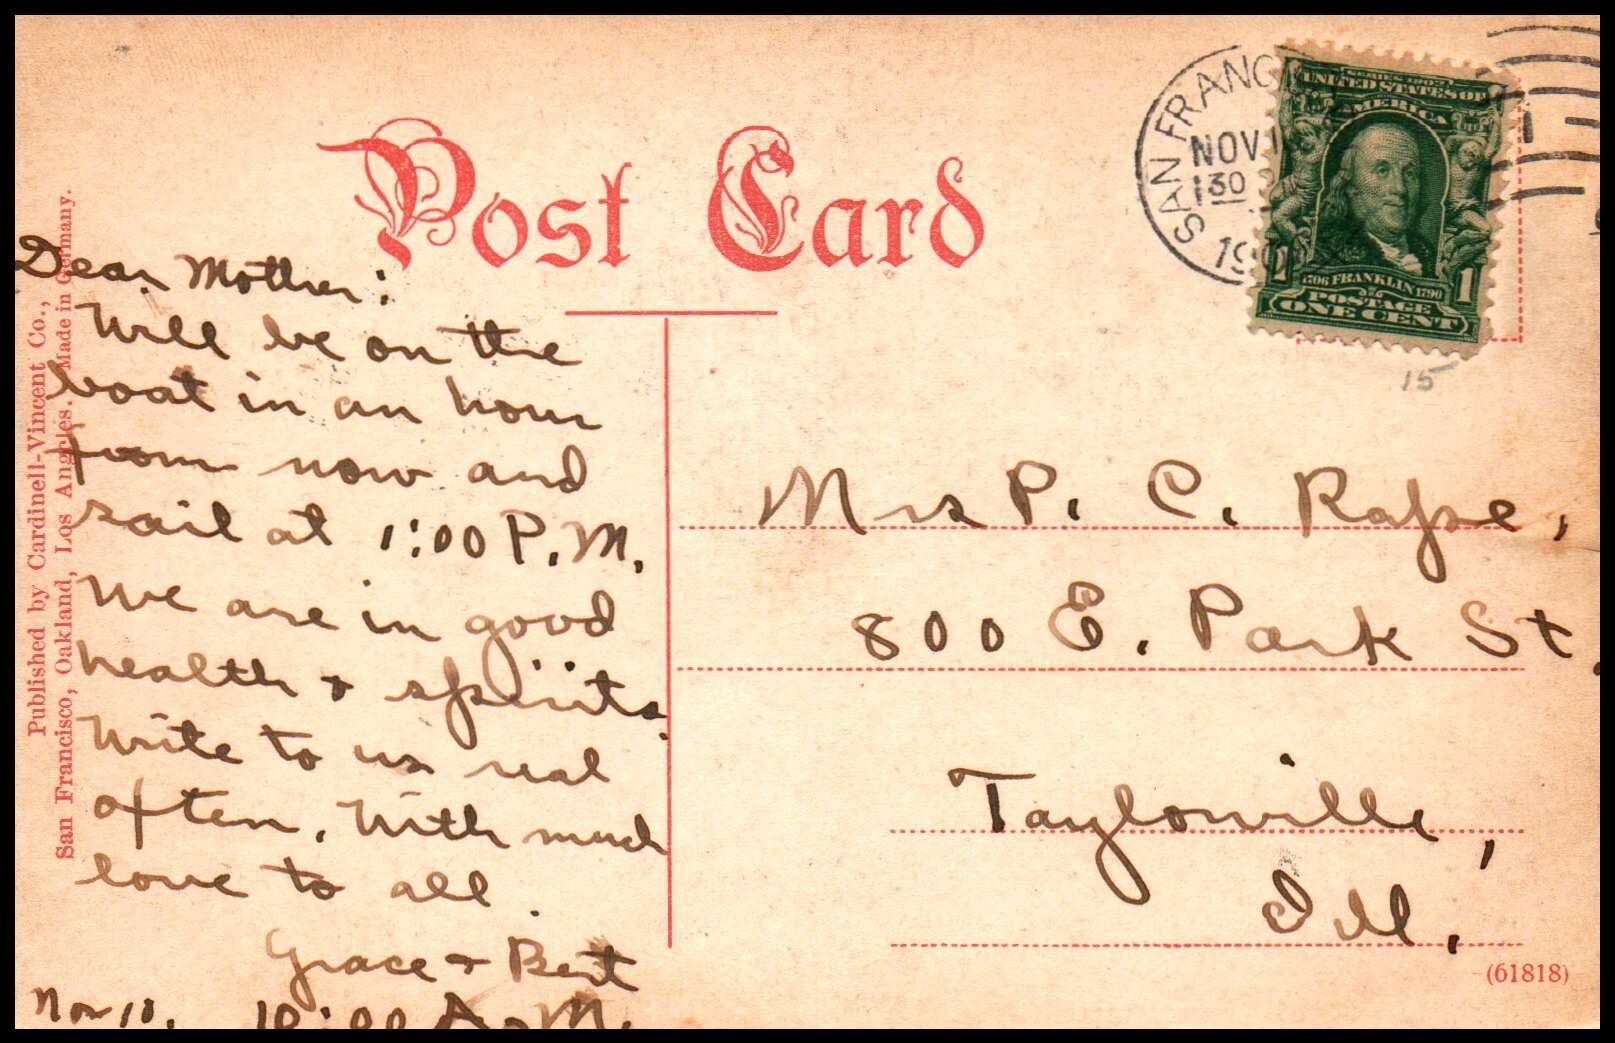 Post Card
SAN FRANC
NOV 1
130
19
SERIES 1902
UNITED STATES OF
AMERICA
1706 FRANKLIN 1790
POSTAGE
1 1
ONE CENT
15
Published by Cardinell-Vincent Co.,
San Francisco, Oakland, Los Angeles. Made in Germany.
Dear Mother:
Will be on the
boat in an hour
from now and
sail at 1:00 P.M.
We are in good
health + spirits.
Write to us real
often. With much
love to all.
Grace + Bert
Nov 10:00 A.M.
Mrs P. C. Rape,
800 E. Park St.
Taylorville,
Ill.
(61818)